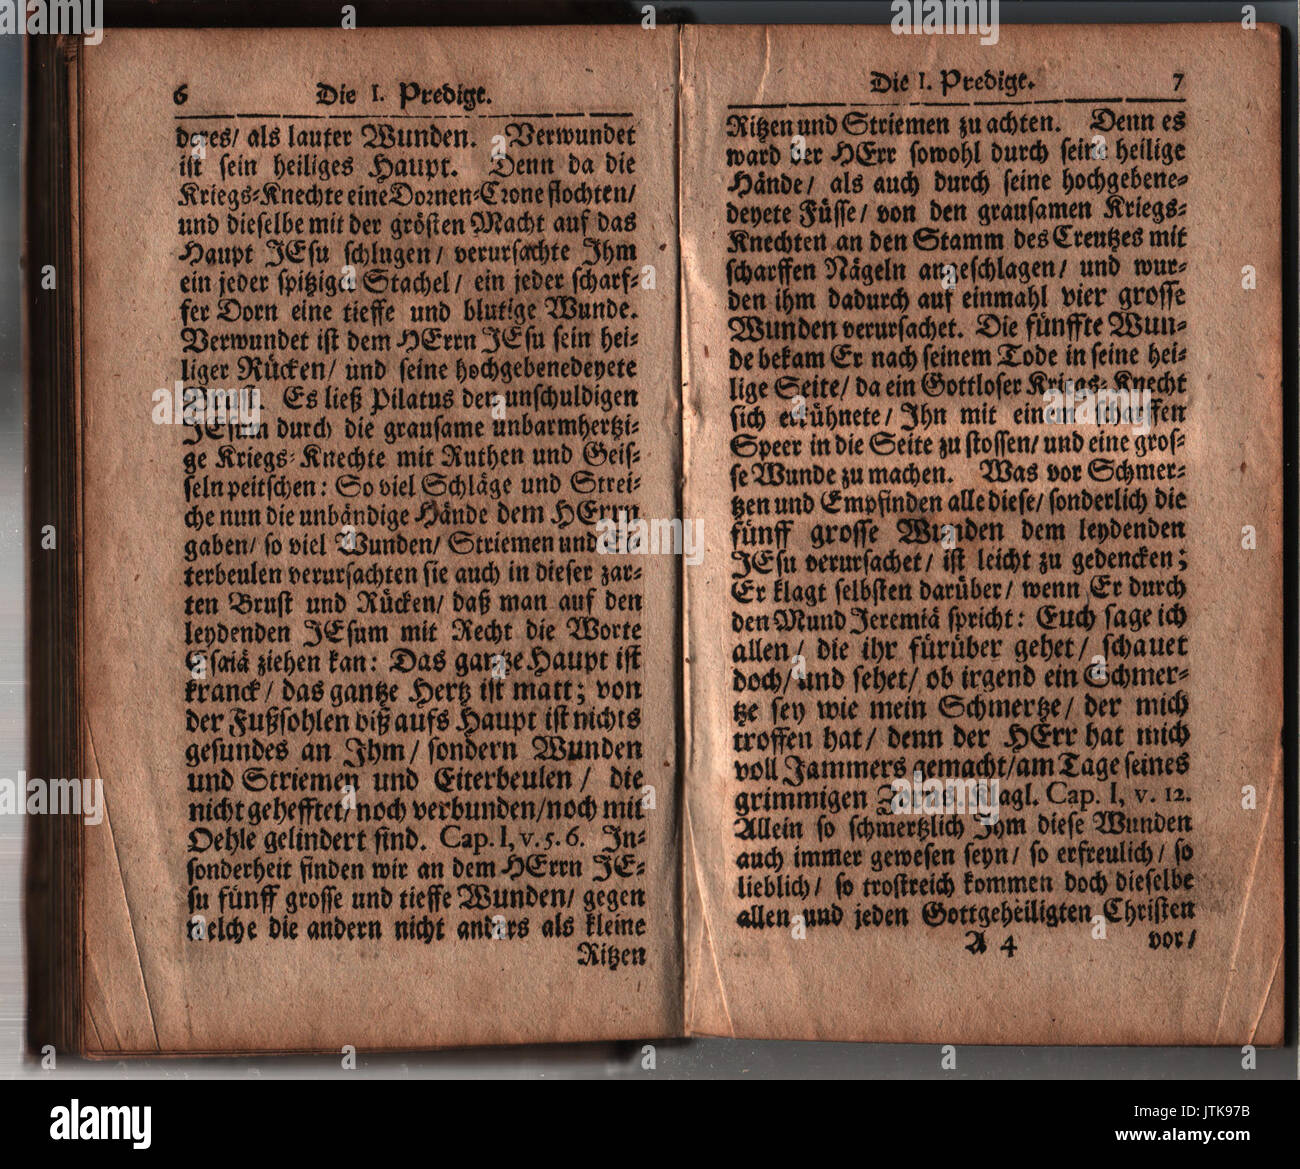 6 Die I. Predigt.
deres/ als lauter Wunden. Verwundet
ist sein heiliges Haupt. Denn da die
Kriegs-Knechte eine Dornen-Crone flochten/
und dieselbe mit der grösten Macht auf das
Haupt JEsu schlugen/ verursachte Ihm
ein jeder spitziger Stachel/ ein jeder scharf-
fer Dorn eine tieffe und blutige Wunde.
Verwundet ist dem HErrn JEsu sein hei-
liger Rücken/ und seine hochgebenedeyete
Brust. Es ließ Pilatus den unschuldigen
JEsum durch die grausame unbarmhertzi-
ge Kriegs-Knechte mit Ruthen und Geis-
seln peitschen: So viel Schläge und Strei-
che nun die unbändige Hände dem HErrn
gaben/ so viel Wunden/ Striemen und Ei-
terbeulen verursachten sie auch in dieser zar-
ten Brust und Rücken/ daß man auf den
leydenden JEsum mit Recht die Worte
Esaiä ziehen kan: Das gantze Haupt ist
kranck/ das gantze Hertz ist matt; von
der Fußsohlen biß aufs Haupt ist nichts
gesundes an Ihm/ sondern Wunden
und Striemen und Eiterbeulen/ die
nicht gehefftet/ noch verbunden/ noch mit
Oehle gelindert sind. Cap. I, v. 5. 6. In-
sonderheit finden wir an dem HErrn JE-
su fünff grosse und tieffe Wunden/ gegen
welche die andern nicht anders als kleine
Ritzen
Die I. Predigt. 7
Ritzen und Striemen zu achten. Denn es
ward der HErr sowohl durch seine heilige
Hände/ als auch durch seine hochgebene-
deyete Füsse/ von den grausamen Kriegs-
Knechten an den Stamm des Creutzes mit
scharffen Nägeln angeschlagen/ und wur-
den ihm dadurch auf einmahl vier grosse
Wunden verursachet. Die fünffte Wun-
de bekam Er nach seinem Tode in seine hei-
lige Seite/ da ein Gottloser Kriegs-Knecht
sich erkühnete/ Ihn mit einem scharffen
Speer in die Seite zu stossen/ und eine gros-
se Wunde zu machen. Was vor Schmer-
tzen und Empfinden alle diese/ sonderlich die
fünff grosse Wunden dem leydenden
JEsu verursachet/ ist leicht zu gedencken;
Er klagt selbsten darüber/ wenn Er durch
den Mund Jeremiä spricht: Euch sage ich
allen/ die ihr fürüber gehet/ schauet
doch/ und sehet/ ob irgend ein Schmer-
tze sey wie mein Schmertze/ der mich
troffen hat/ denn der HErr hat mich
voll Jammers gemacht/ am Tage seines
grimmigen Zorns. Klagl. Cap. I, v. 12.
Allein so schmertzlich Ihm diese Wunden
auch immer gewesen seyn/ so erfreulich/ so
lieblich/ so trostreich kommen doch dieselbe
allen und jeden Gottgeheiligten Christen
A 4 vor/
alamy stock photo
JTK97B
www.alamy.com